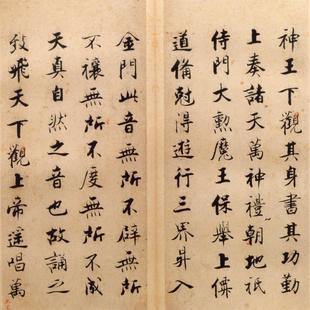 神王下觀其身書其功勤
上奏諸天萬神禮朝地祇
侍門大勲魔王保舉上僊
道備尅得遊行三界昇入
金門此音無所不辟無所
不禳無所不度無所不成
天真自然之音也故誦之
致飛天下觀上帝遥唱萬